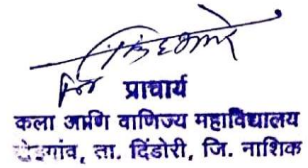 प्राचार्य
कला आणि वाणिज्य महाविद्यालय
ता. दिंडोरी, जि. नाशिक